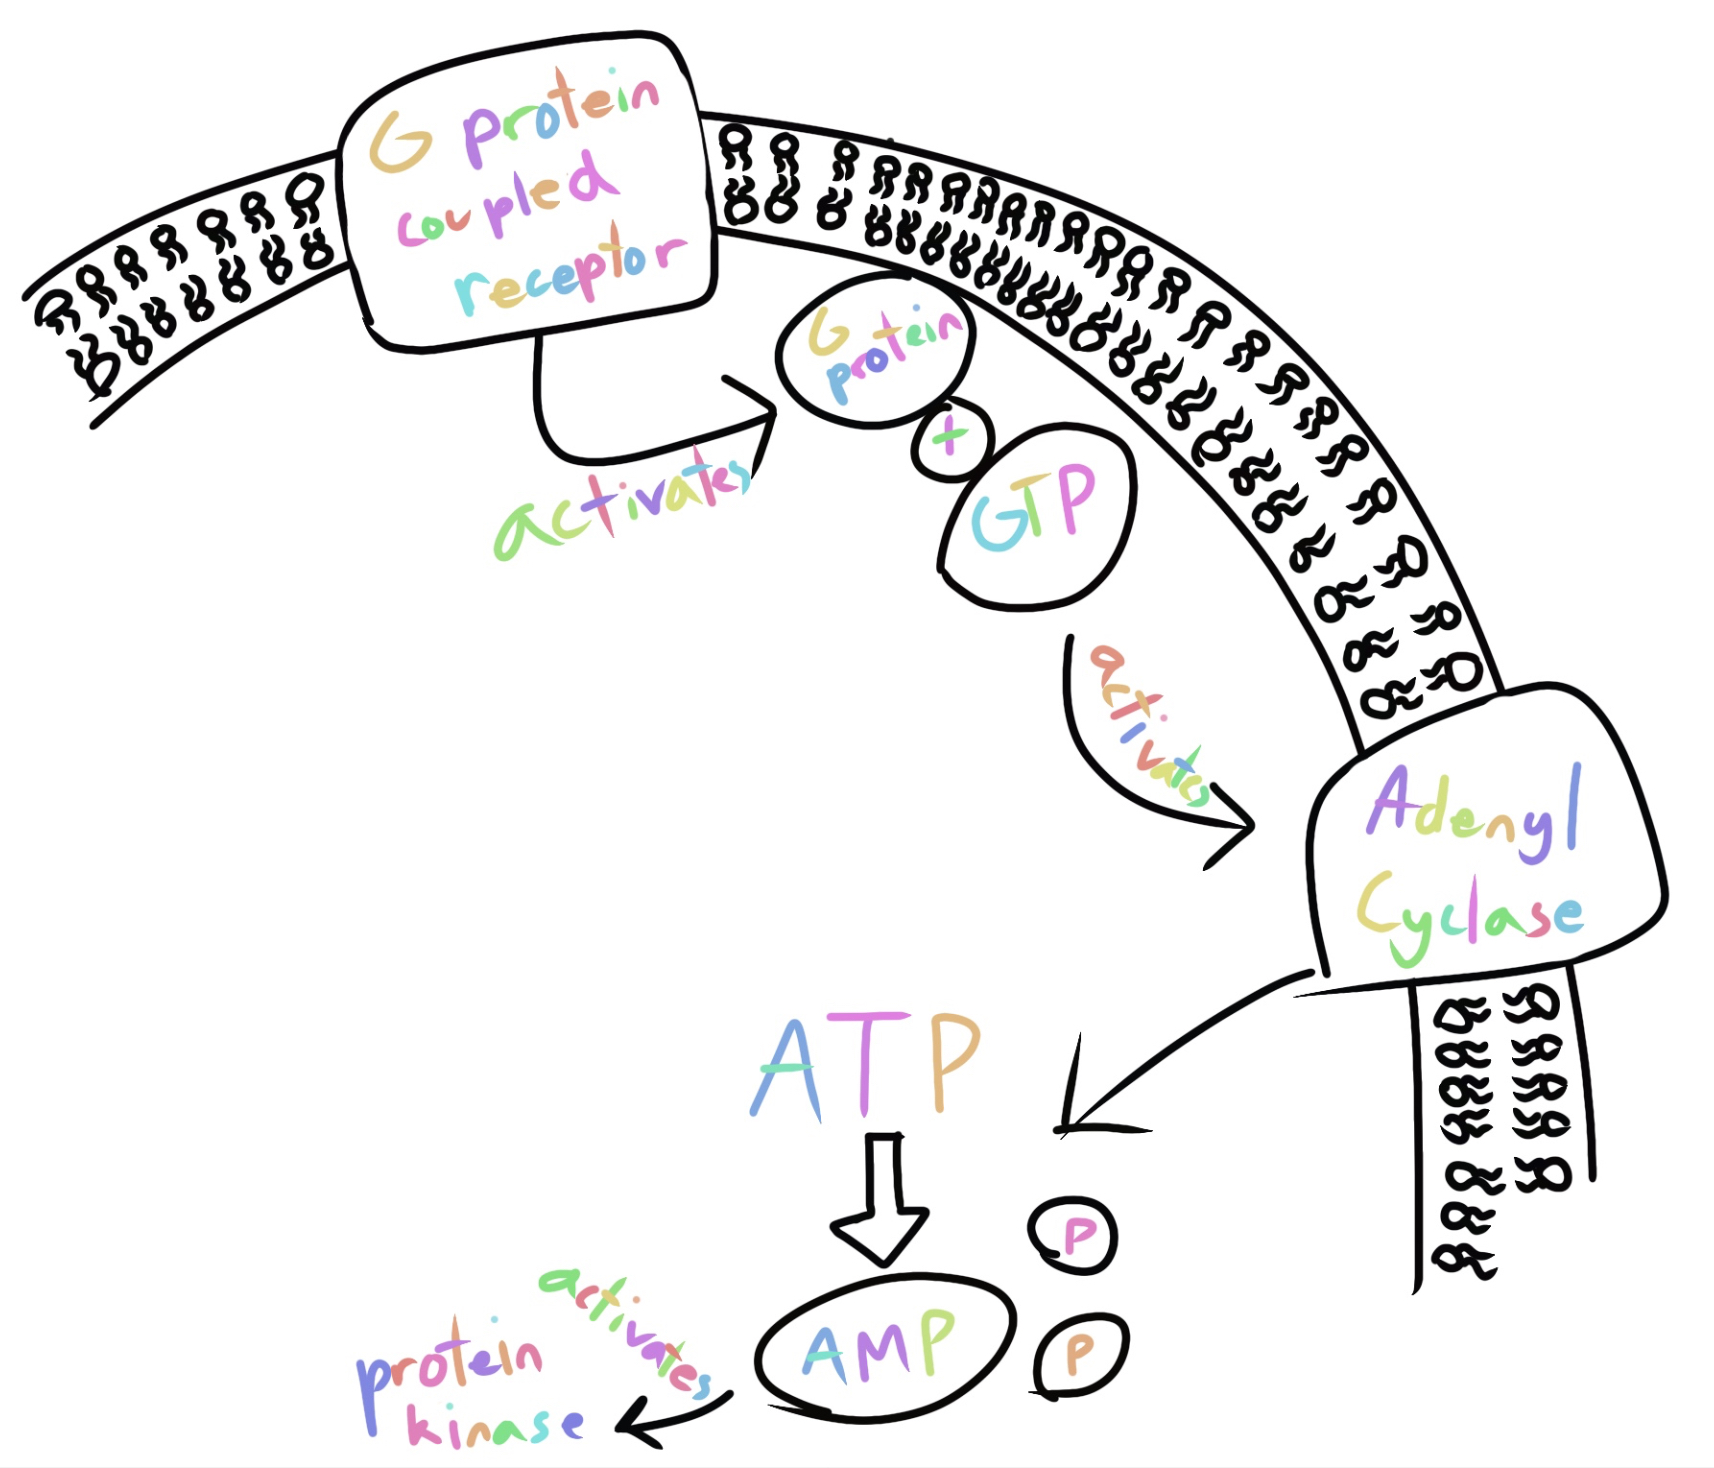 G protein
coupled
receptor
activates
G
protein
+
GTP
activates
Adenyl
Cyclase
ATP
P
P
AMP
activates
protein
kinase